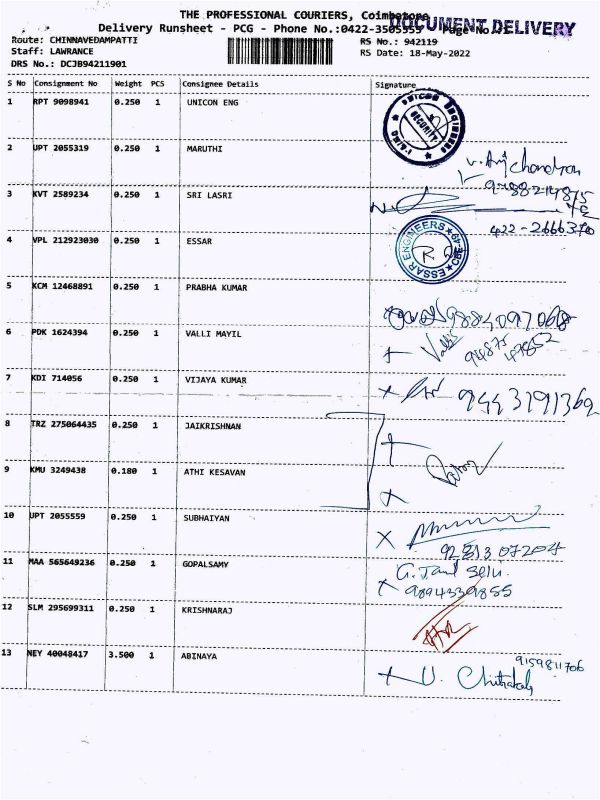 THE PROFESSIONAL COURIERS, Coimbatore
DOCUMENT DELIVERY
Delivery Runsheet - PCG - Phone No.:0422-3505555 Page No.:1
Route: CHINNAVEDAMPATTI
RS No.: 942119
Staff: LAWRANCE
RS Date: 18-May-2022
DRS No.: DCJB94211901
S No Consignment No Weight PCS Consignee Details Signature
1 RPT 9098941 0.250 1 UNICON ENG
UNICON ENGINEERS
SECURITY
2 UPT 2055319 0.250 1 MARUTHI
3 KVT 2589234 0.250 1 SRI LASRI
422-2666370
4 VPL 212923030 0.250 1 ESSAR
ESSAR ENGINEERS
5 KCM 12468891 0.250 1 PRABHA KUMAR
6 PDK 1624394 0.250 1 VALLI MAYIL
Valli 94875 47852
7 KDI 714056 0.250 1 VIJAYA KUMAR
9443191369
8 TRZ 275064435 0.250 1 JAIKRISHNAN
9 KMU 3249438 0.180 1 ATHI KESAVAN
10 UPT 2055559 0.250 1 SUBHAIYAN
11 MAA 565649236 0.250 1 GOPALSAMY
9894339855
12 SLM 295699311 0.250 1 KRISHNARAJ
13 NEY 40048417 3.500 1 ABINAYA
9159811706